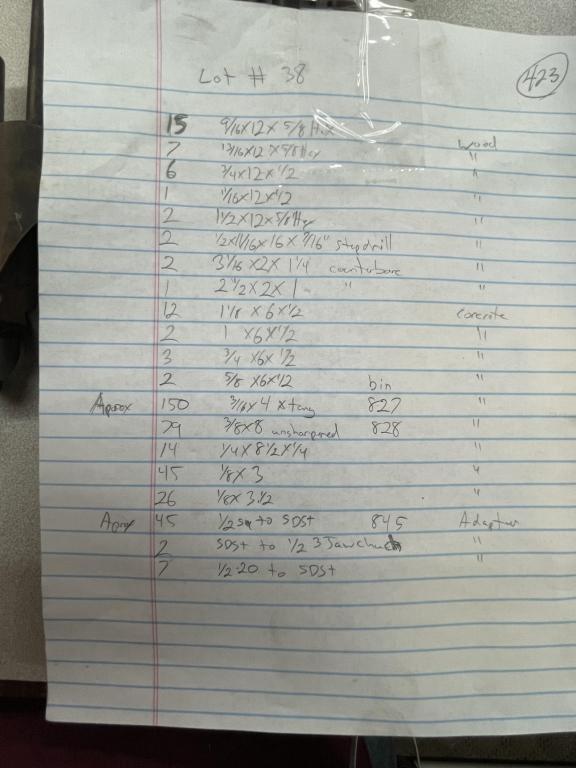 Lot # 38 423
15 9/16x12x 5/8 Hex
7 13/16x12 x5/8Hex Wood
6 3/4x12x1/2 "
1 11/16x12x1/2 "
2 1 1/2x12x5/8Hex "
2 1/2x11/16x16x 7/16" stepdrill "
2 3 1/16 x2x 1 1/4 counterbore "
1 2 1/2x2x1 " "
12 1 1/8 x6x1/2 concrete
2 1 x6x1/2 "
3 3/4 x6x 1/2 "
2 5/8 x6x1/2 bin "
Aprox 150 3/16x4 x tang 827 "
29 3/8x8 unsharpened 828 "
14 1/4x8 1/2x1/4 "
45 1/8x3 "
26 1/8x3 1/2 "
Aprox 45 1/2 to SDS+ 845 Adapter
2 SDS+ to 1/2 3Jawchuck "
7 1/2-20 to SDS+ "